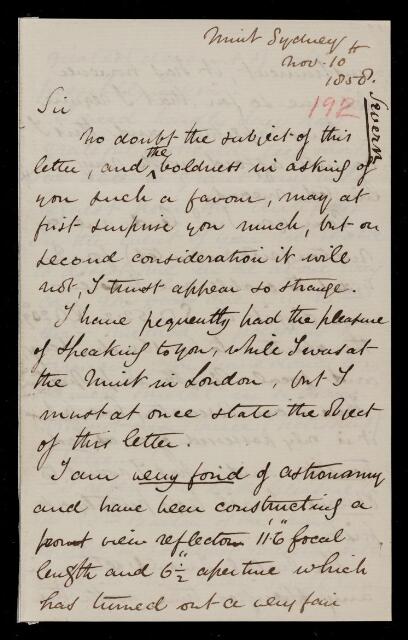 Mint Sydney
Nov. 10th
1858.
192
Severn
Sir
No doubt the subject of this
letter, and the boldness in asking of
you such a favour, may at
first surprise you much, but on
second consideration it will
not, I trust appear so strange.
I have frequently had the pleasure
of speaking to you, while I was at
the Mint in London, but I
must at once state the object
of this letter.
I am very fond of astronomy
and have been constructing a
front view reflector 11"·6' focal
length and 6 1/2" aperture which
has turned out a very fair